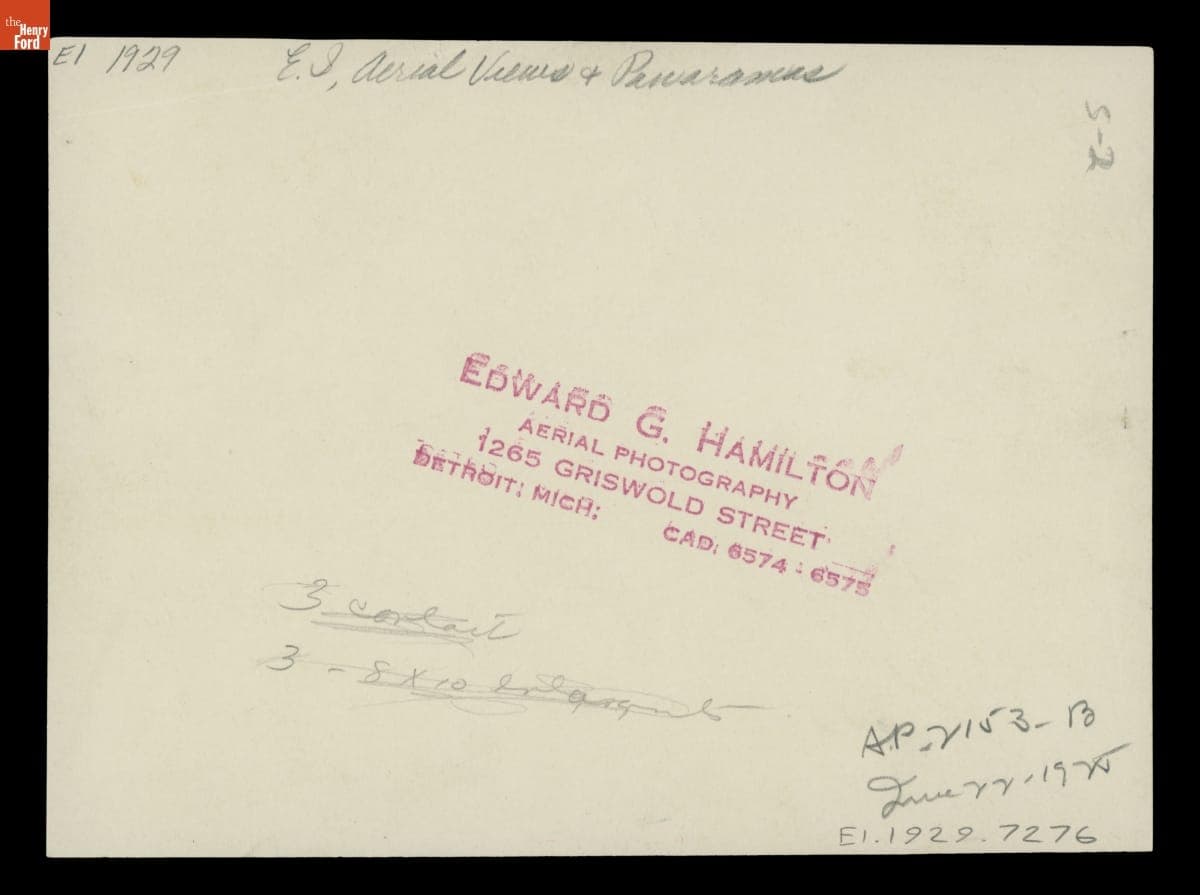 the
Henry
Ford
EI 1929
E.I, Aerial Views & Panaramas
S-2
EDWARD G. HAMILTON
AERIAL PHOTOGRAPHY
1265 GRISWOLD STREET
DETROIT, MICH. CAD. 6574 - 6575
3 contact
3 - 8 x 10
A.P. - 2153 - B
June 22 - 1925
EI.1929.7276